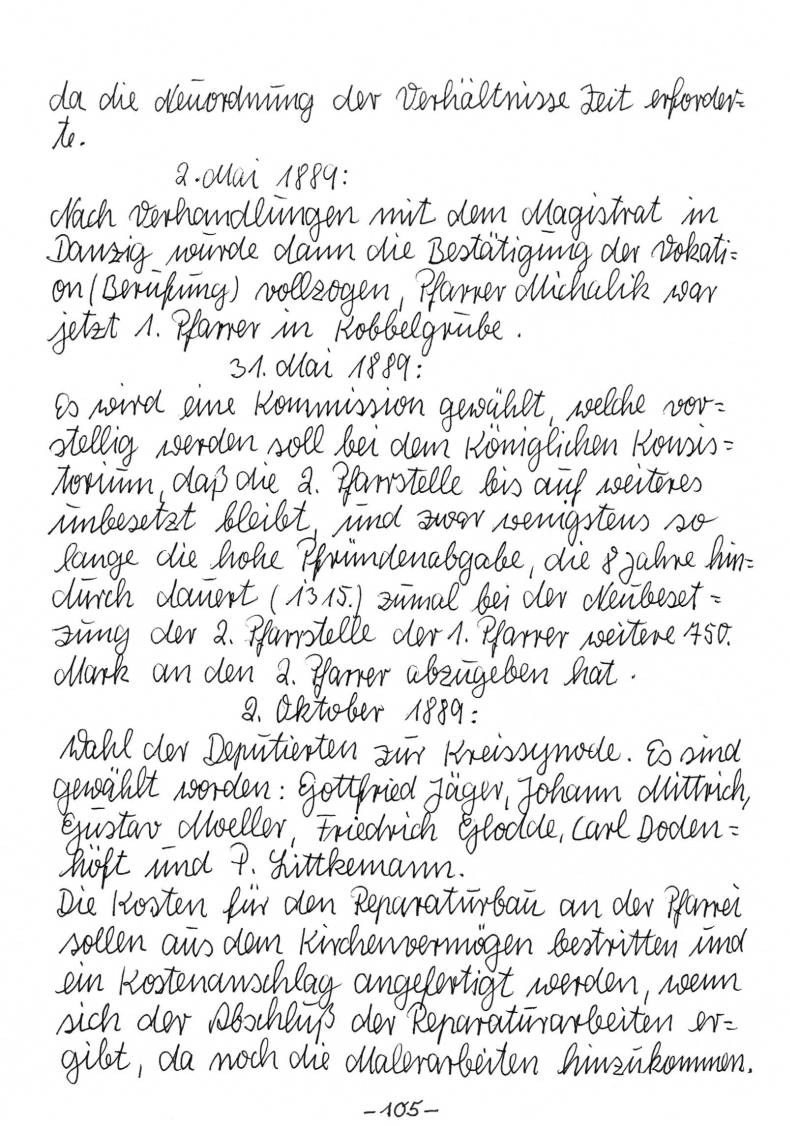 da die Neuordnung der Verhältnisse Zeit erforder=
te.
2. Mai 1889:
Nach Verhandlungen mit dem Magistrat in
Danzig wurde dann die Bestätigung der Vokati=
on (Berufung) vollzogen, Pfarrer Michalik war
jetzt 1. Pfarrer in Kobbelgrube.
31. Mai 1889:
Es wird eine Kommission gewählt, welche vor=
stellig werden soll bei dem Königlichen Konsis=
torium, daß die 2. Pfarrstelle bis auf weiteres
unbesetzt bleibt, und zwar wenigstens so
lange die hohe Pfründenabgabe, die 8 Jahre hin=
durch dauert (1315.) zumal bei der Neubeset=
zung der 2. Pfarrstelle der 1. Pfarrer weitere 750.
Mark an den 2. Pfarrer abzugeben hat.
2. Oktober 1889:
Wahl der Deputierten zur Kreissynode. Es sind
gewählt worden: Gottfried Jäger, Johann Mittrich,
Gustav Moeller, Friedrich Glodde, Carl Doden=
höft und P. Littkemann.
Die Kosten für den Reparaturbau an der Pfarrei
sollen aus dem Kirchenvermögen bestritten und
ein Kostenanschlag angefertigt werden, wenn
sich der Abschluß der Reparaturarbeiten er=
gibt, da noch die Malerarbeiten hinzukommen.
-105-